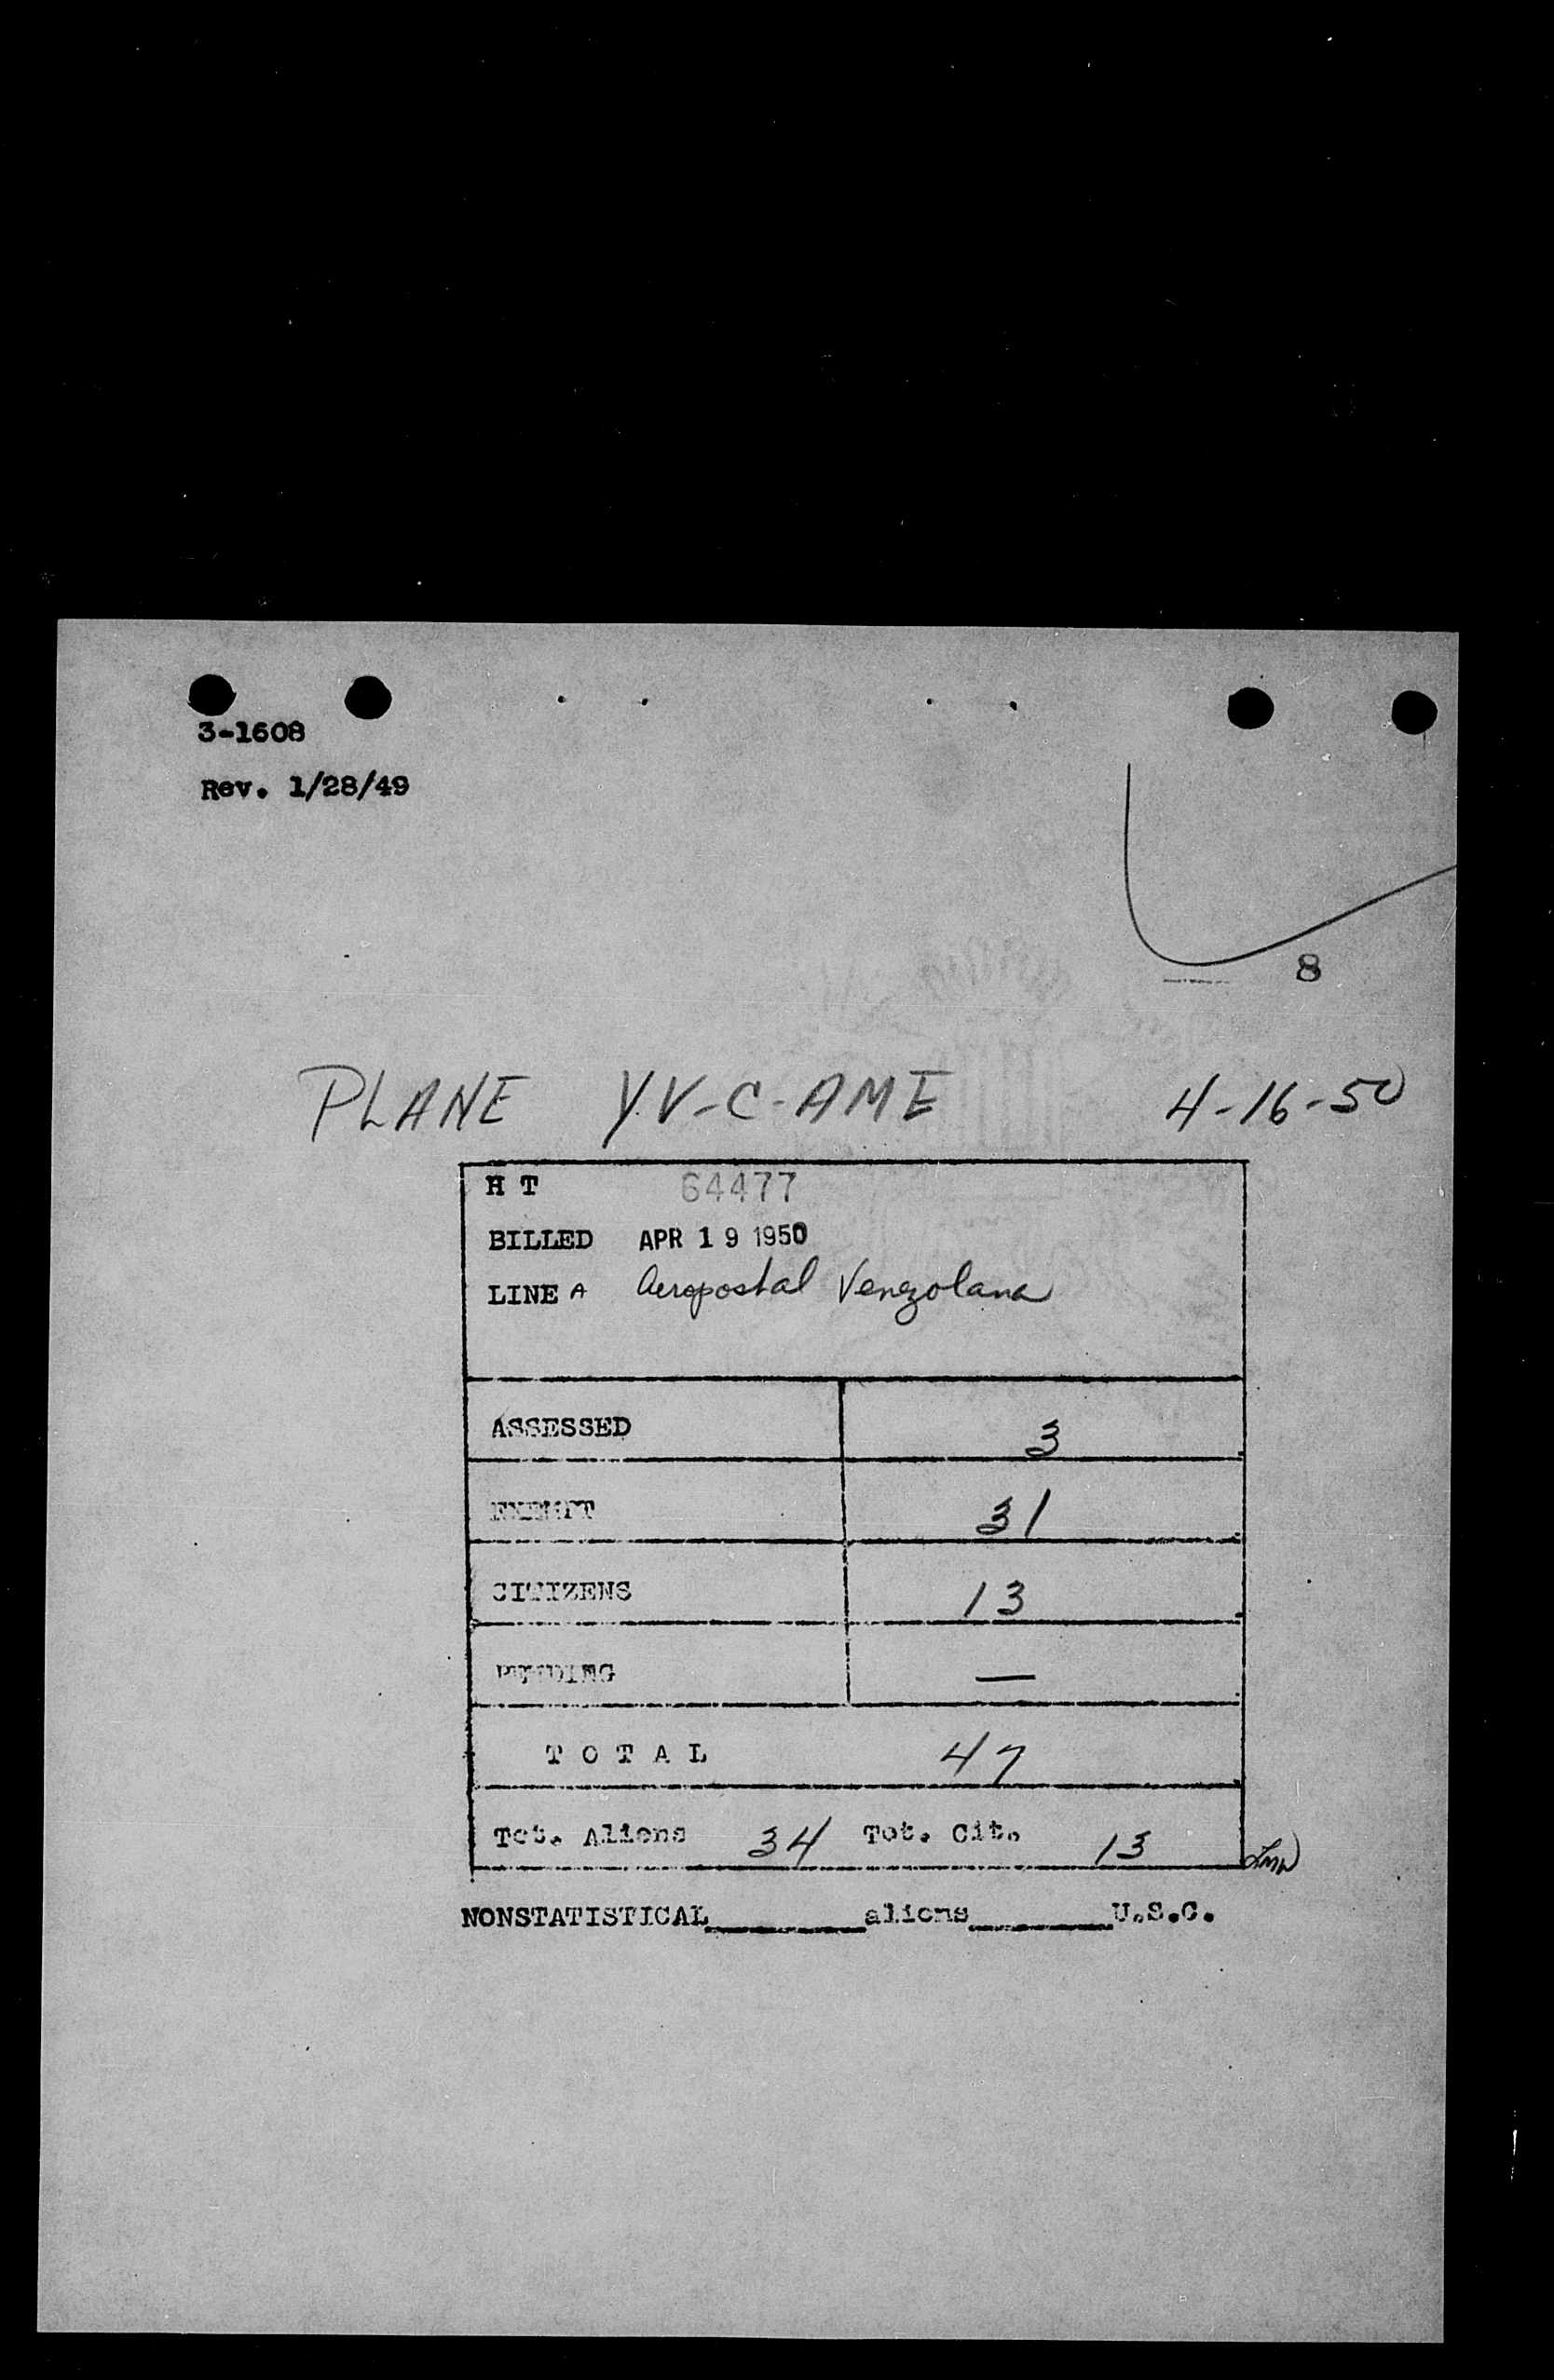 3-1608
Rev. 1/28/49
8
PLANE YV-C-AME 4-16-50
H T 64477
BILLED APR 19 1950
LINE A Aeropostal Venezolana
ASSESSED 3
EXEMPT 31
CITIZENS 13
PENDING —
TOTAL 47
Tot. Aliens 34 Tot. Cit. 13
NONSTATISTICAL________aliens________U.S.C.